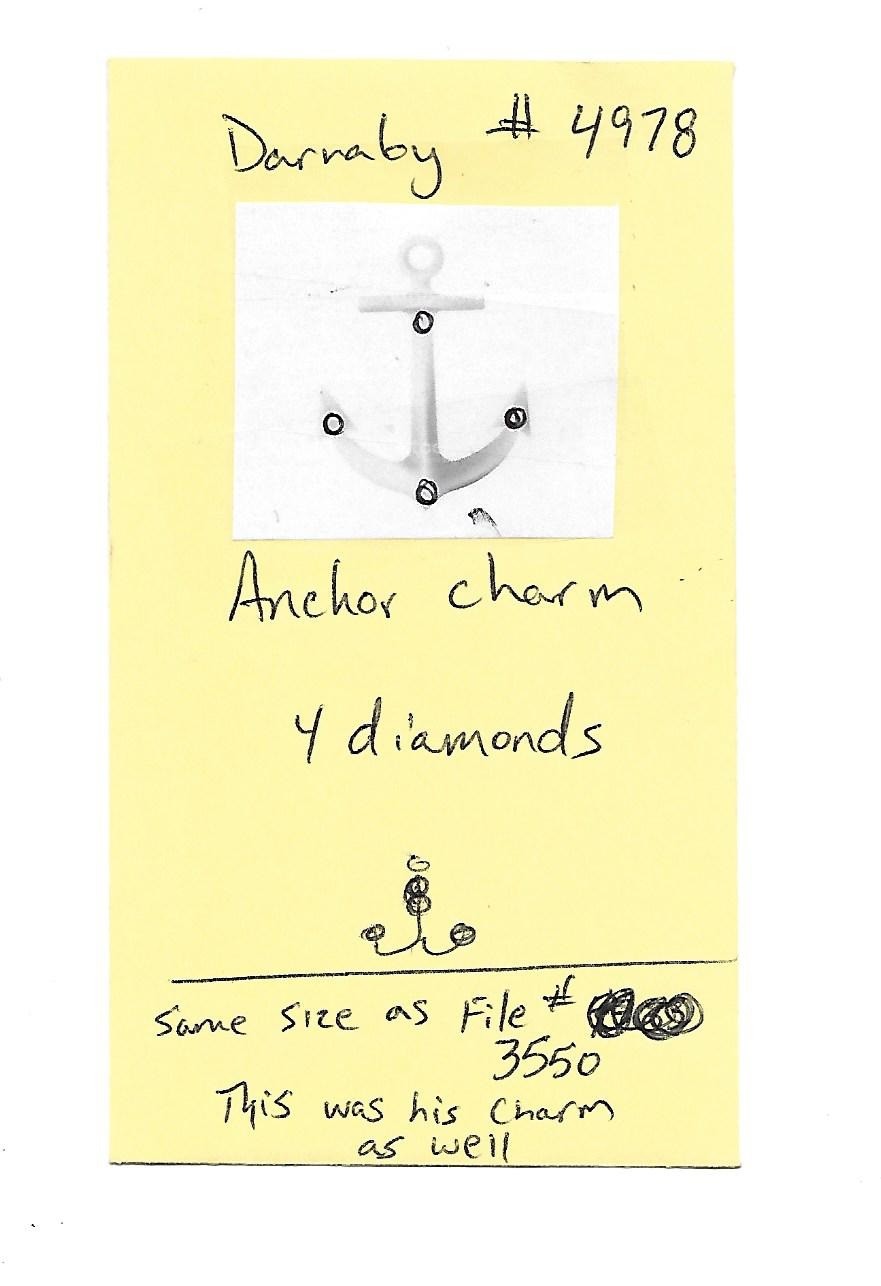 Darnaby # 4978
Anchor charm
4 diamonds
Same size as File #
3550
This was his charm
as well